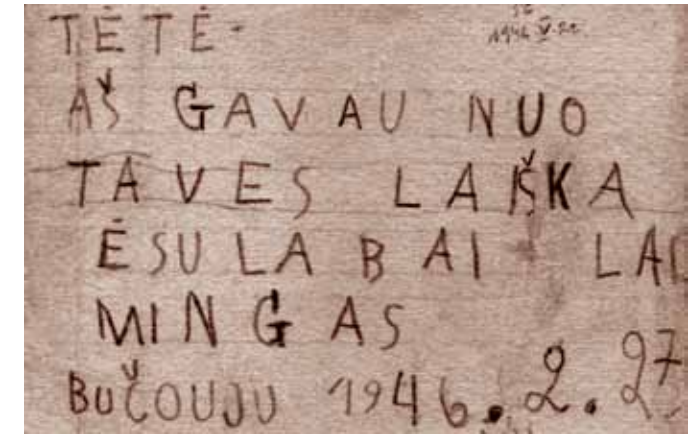 TĖTĖ-
1946 V.
AŠ GAVAU NUO
TAVES LAIŠKA
ĖSU LABAI LAI
MINGAS
BUČOUJU 1946.2.27